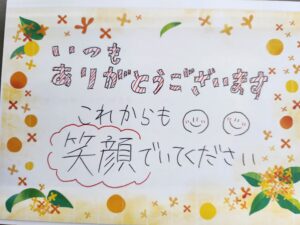 いつも
ありがとうございます
これからも
笑顔でいてください